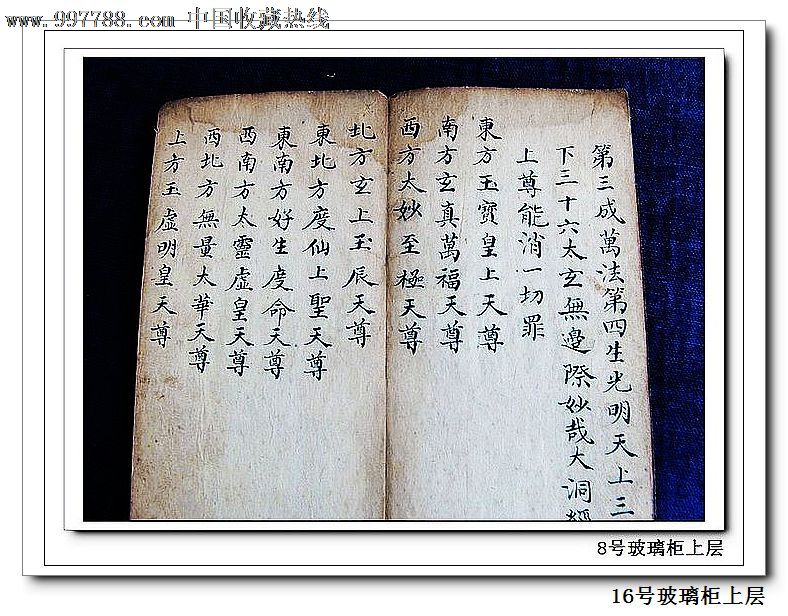 www.997788.com 中国收藏热线
第三成萬法第四生光明天上三
下三十六太玄無邊際妙哉大洞經
上尊能消一切罪
東方玉寶皇上天尊
南方玄真萬福天尊
西方太妙至極天尊
北方玄上玉辰天尊
東北方度仙上聖天尊
東南方好生度命天尊
西南方太靈虛皇天尊
西北方無量太華天尊
上方玉虛明皇天尊
8号玻璃柜上层
16号玻璃柜上层